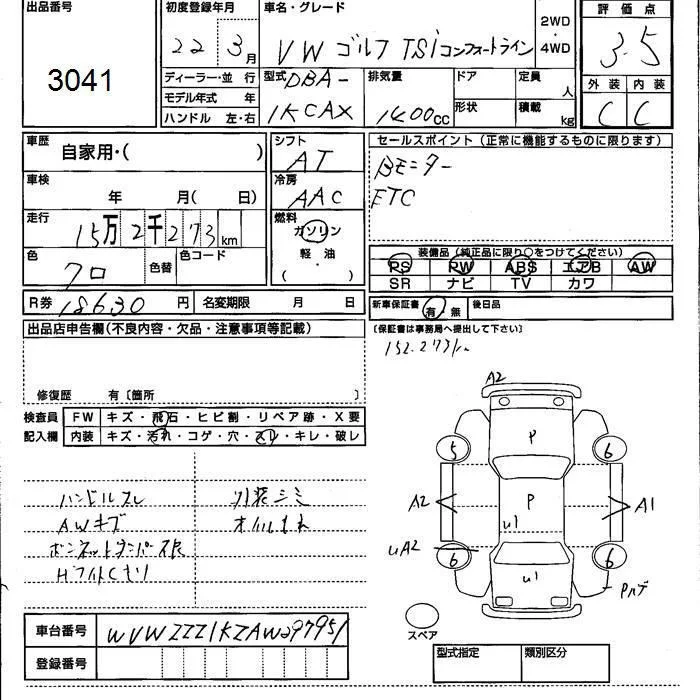 出品番号
3041
初度登録年月
22 3月
車名・グレード
VW ゴルフ TSi コンフォートライン
2WD
・
4WD
評価点
3.5
外装 内装
C C
ディーラー・並行
モデル年式 年
ハンドル 左・右
型式 DBA-
1KCAX
排気量
1400cc
ドア
形状
定員 人
積載 kg
車歴 自家用・( )
シフト
AT
セールスポイント(正常に機能するものに限ります)
Bモニター
ETC
車検
年 月( 日)
冷房
AAC
走行
15万2千273km
燃料
ガソリン
軽・油
( )
色
クロ
色替
色コード
装備品(純正品に限り○をつけてください)
PS PW ABS エアB AW
SR ナビ TV カワ
R券 18630円
名変期限 月 日
新車保証書 有・無 後日品
(保証書は事務局へ提出して下さい)
出品店申告欄(不良内容・欠品・注意事項等記載)
152.273km
修復歴 有〔箇所 〕
検査員 FW キズ・飛石・ヒビ割・リペア跡・X要
記入欄 内装 キズ・汚れ・コゲ・穴・スレ・キレ・破レ
ハンドルスレ
AWキズ
ボンネットダンパー不良
Hライトくもり
外装シミ
オイルもれ
A2
P
5
6
A2
P
A1
U1
UA2
6
6
U1
Pハゲ
スペア
車台番号 WVWZZZ1KZAW297951
登録番号
型式指定 類別区分